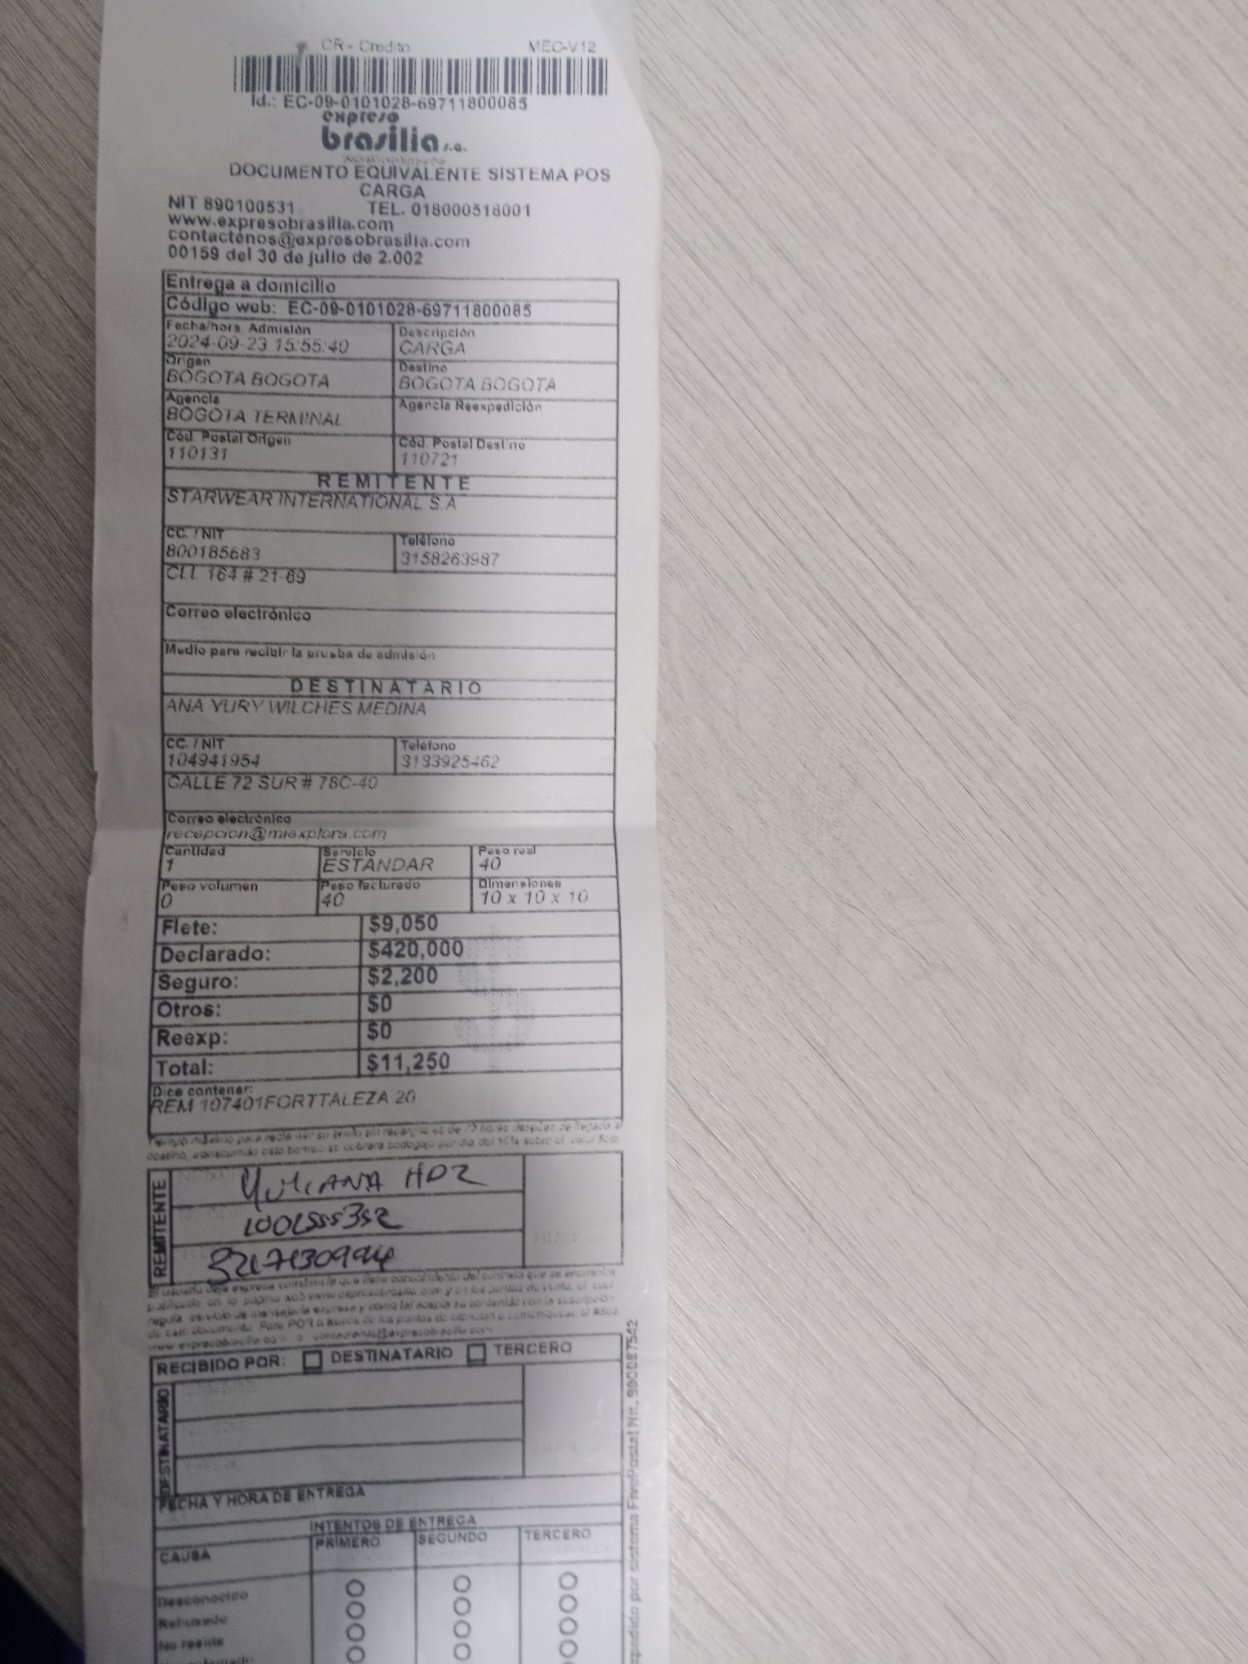 CR - Credito MEC-V12
Id.: EC-09-0101028-69711800085
expreso
brasilia s.a.
DOCUMENTO EQUIVALENTE SISTEMA POS
CARGA
NIT 890100531 TEL. 018000518001
www.expresobrasilia.com
contactenos@expresobrasilia.com
00159 del 30 de julio de 2.002
Entrega a domicilio
Código web: EC-09-0101028-69711800085
Fecha/hora Admisión Descripción
2024-09-23 15:55:40 CARGA
Origen Destino
BOGOTA BOGOTA BOGOTA BOGOTA
Agencia Agencia Reexpedición
BOGOTA TERMINAL
Cód. Postal Origen Cód. Postal Destino
110131 110721
REMITENTE
STARWEAR INTERNATIONAL S.A
CC. / NIT Teléfono
800185683 3158263987
CLL 164 # 21-69
Correo electrónico
Medio para recibir la prueba de admisión
DESTINATARIO
ANA YURY WILCHES MEDINA
CC. / NIT Teléfono
104941954 3133925462
CALLE 72 SUR # 78C-40
Correo electrónico
recepcion@miaxplora.com
Cantidad Servicio Peso real
1 ESTANDAR 40
Peso volumen Peso facturado Dimensiones
0 40 10 x 10 x 10
Flete: $9,050
Declarado: $420,000
Seguro: $2,200
Otros: $0
Reexp: $0
Total: $11,250
Dice contener:
REM 107401FORTTALEZA 20
REMITENTE
YULIANA HDZ
RECIBIDO POR: DESTINATARIO TERCERO
DESTINATARIO
FECHA Y HORA DE ENTREGA
INTENTOS DE ENTREGA
CAUSA PRIMERO SEGUNDO TERCERO
Desconocido
Rehusado
No reside